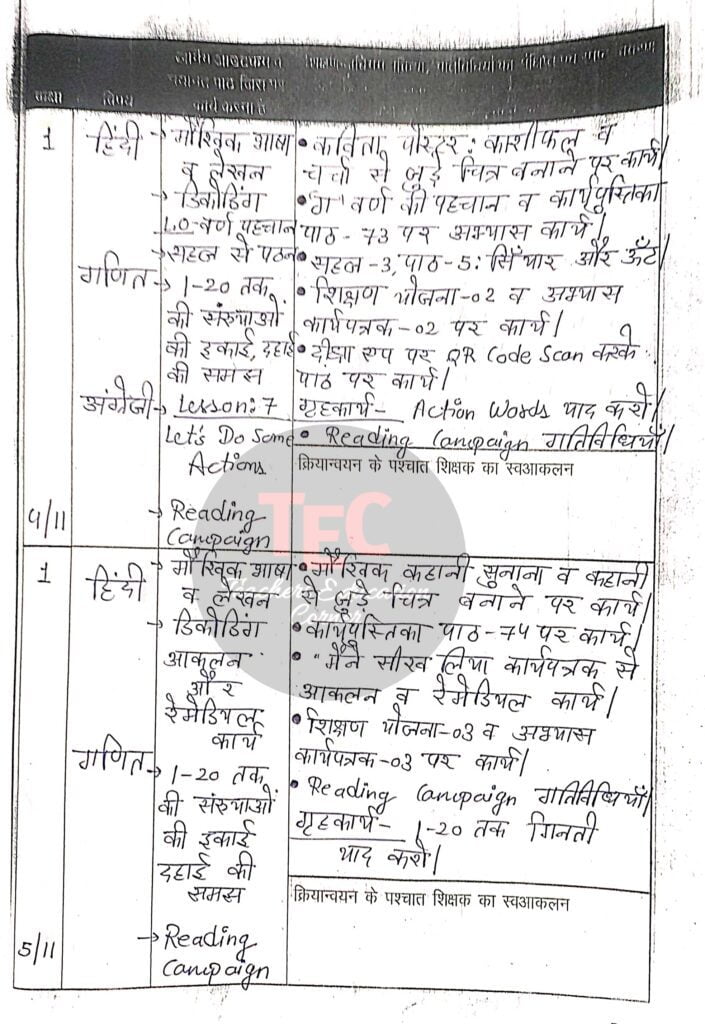 कक्षा
विषय
कार्य करना है
1
हिंदी
→ मौखिक भाषा
व लेखन
→ डिकोडिंग
L.O-वर्ण पहचान
→ सहज से पठन
• कविता पोस्टर: काशीफल व
चर्चा से जुड़े चित्र बनाने पर कार्य।
• "ग" वर्ण की पहचान व कार्यपुस्तिका
पाठ - 73 पर अभ्यास कार्य।
• सहज-3, पाठ-5: सियार और ऊँट।
गणित
→ 1-20 तक
की संख्याओं
की इकाई, दहाई
की समझ
• शिक्षण योजना-02 व अभ्यास
कार्यपत्रक-02 पर कार्य।
• दीक्षा एप पर QR Code Scan करके
पाठ पर कार्य।
अंग्रेजी
→ Lesson: 7
Let's Do Some
Actions
गृहकार्य- Action Words याद करो।
• Reading Campaign गतिविधियाँ।
क्रियान्वयन के पश्चात शिक्षक का स्वआकलन
4/11
→ Reading
Campaign
TEC
Teachers Education
Corner
1
हिंदी
→ मौखिक भाषा
व लेखन
→ डिकोडिंग
आकलन
और
रेमेडियल
कार्य
• मौखिक कहानी सुनाना व कहानी
से जुड़े चित्र बनाने पर कार्य।
• कार्यपुस्तिका पाठ-74 पर कार्य।
• "मैंने सीख लिया कार्यपत्रक से
आकलन व रेमेडियल कार्य।
गणित
→ 1-20 तक
की संख्याओं
की इकाई
दहाई की
समझ
• शिक्षण योजना-03 व अभ्यास
कार्यपत्रक-03 पर कार्य।
• Reading Campaign गतिविधियाँ।
गृहकार्य- 1-20 तक गिनती
याद करो।
क्रियान्वयन के पश्चात शिक्षक का स्वआकलन
5/11
→ Reading
Campaign